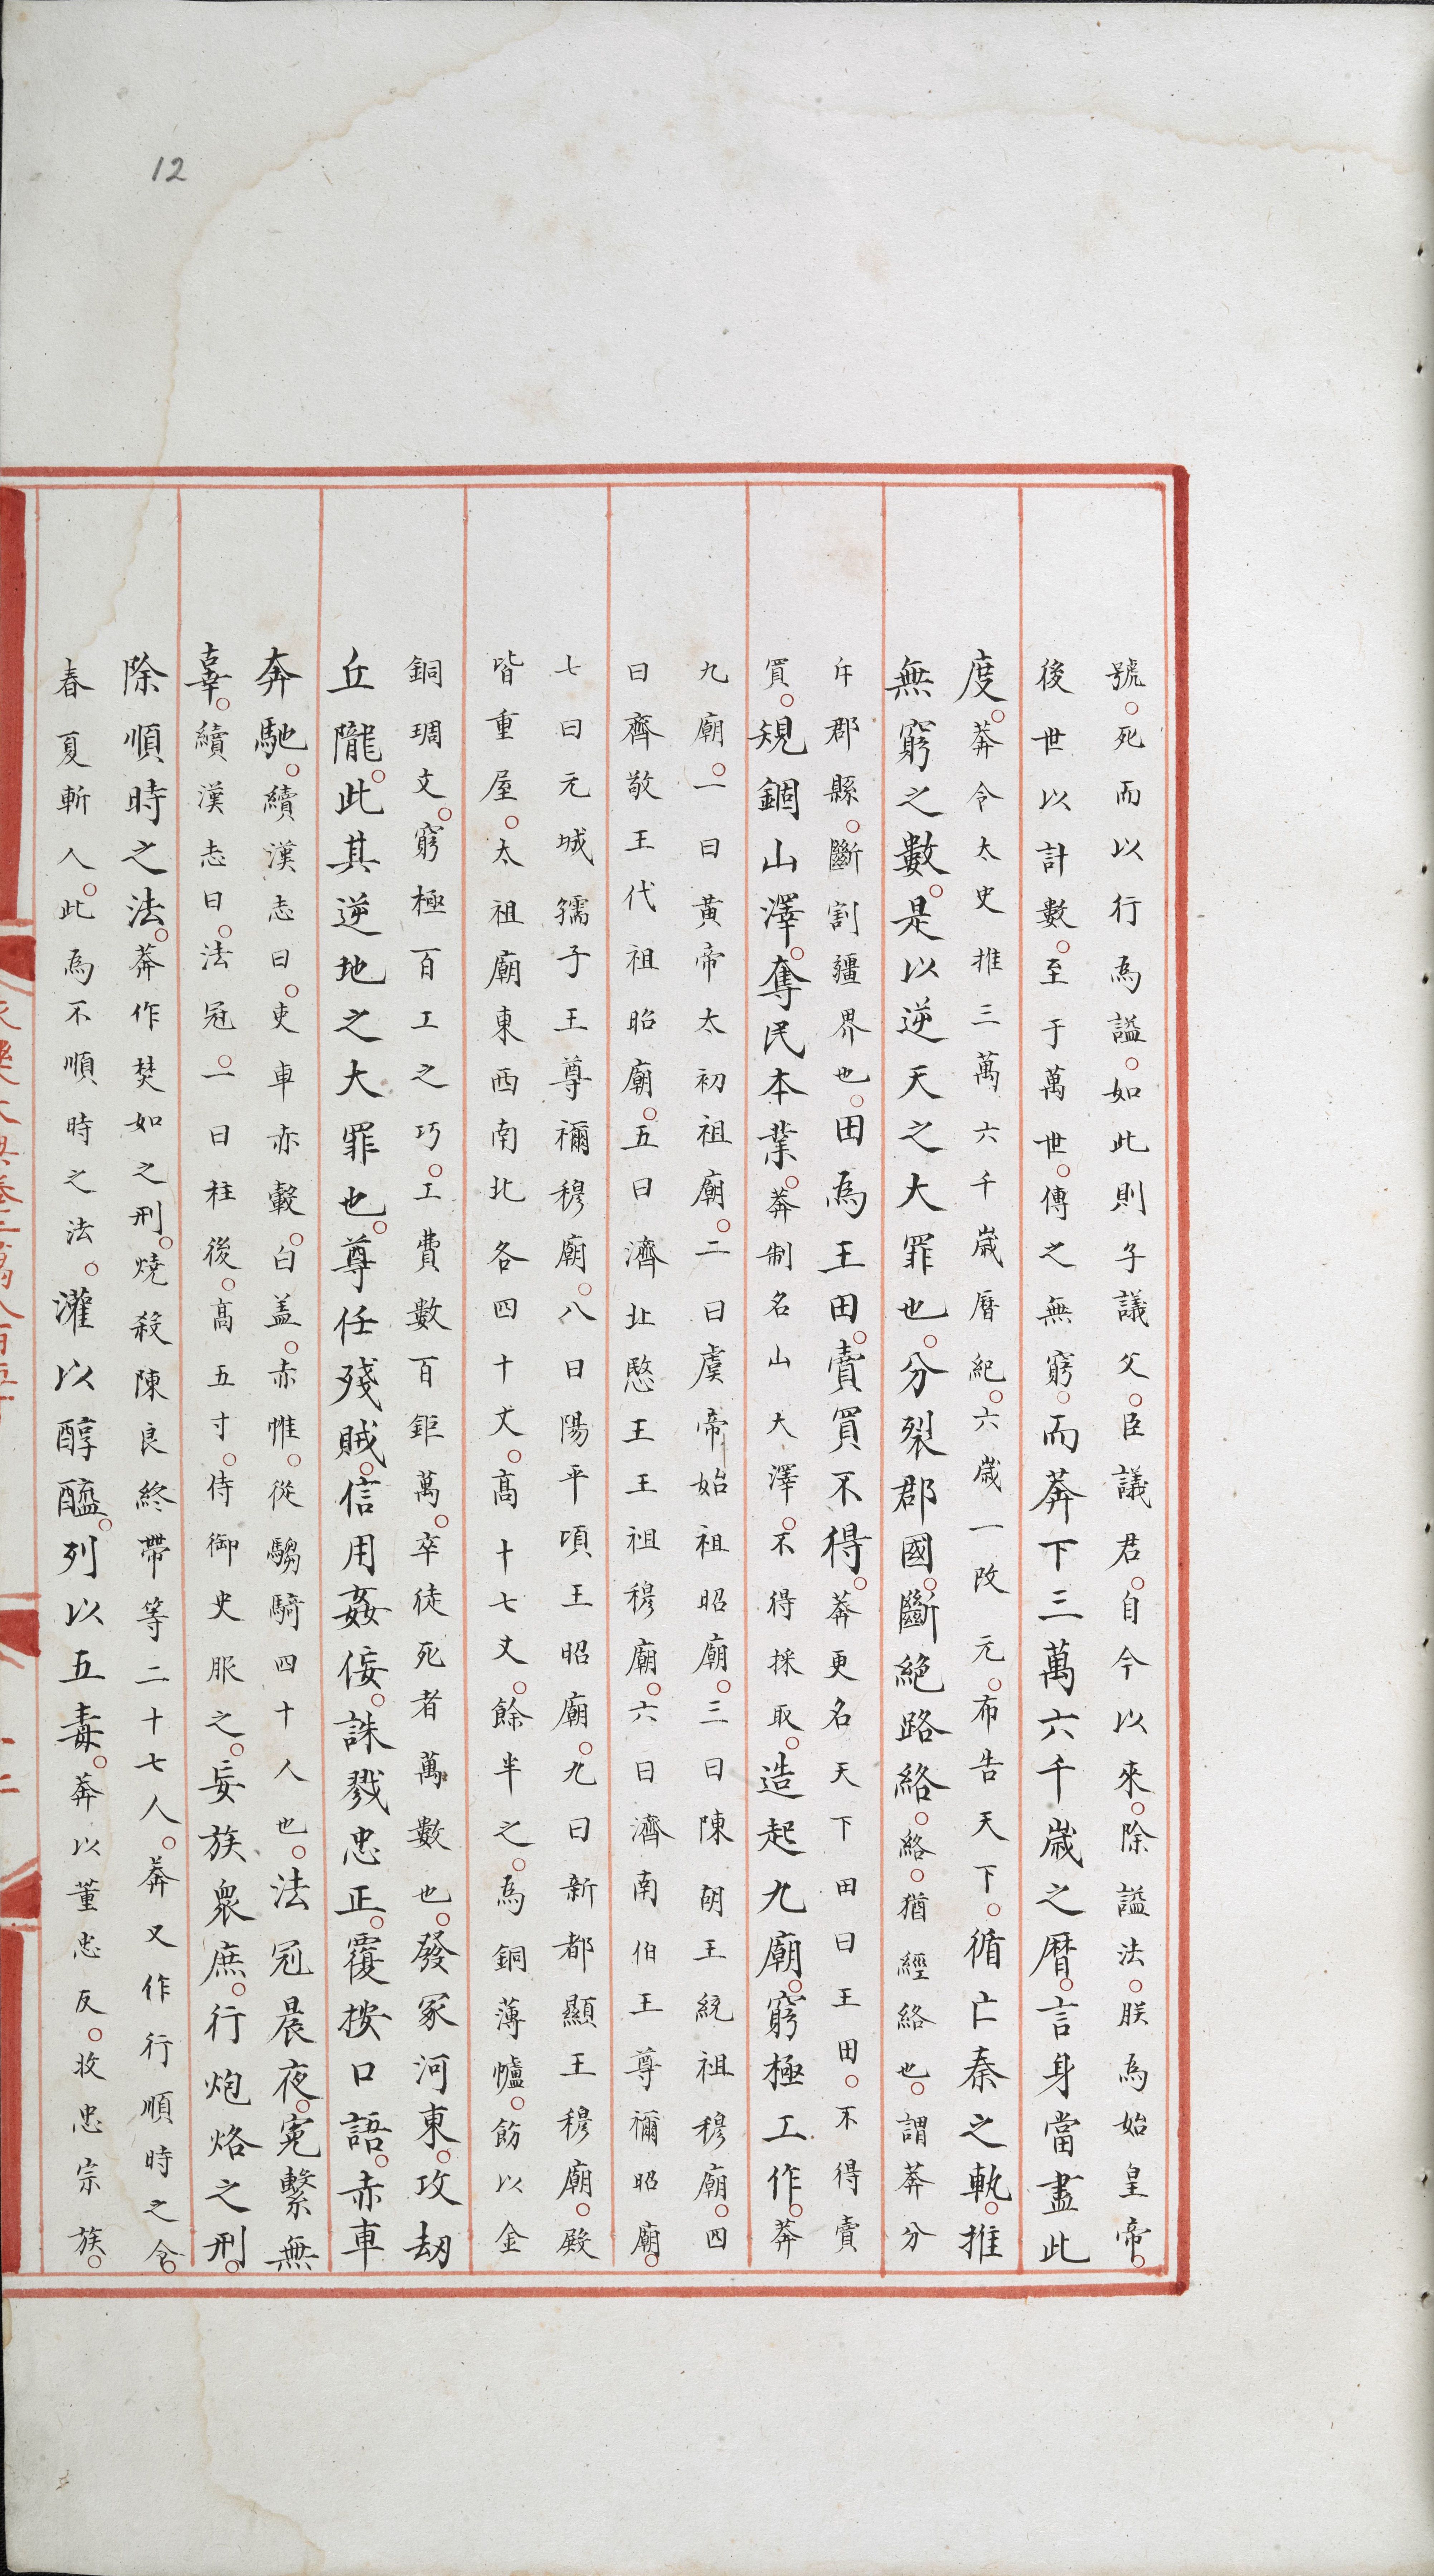 12
號。死而以行為謚。如此則子議父。臣議君。自今以來。除謚法。朕為始皇帝。
後世以計數。至于萬世。傳之無窮。而莽下三萬六千歲之曆。言身當盡此
度。莽令太史推三萬六千歲曆紀。六歲一改元。布告天下。循亡秦之軌。推
無窮之數。是以逆天之大罪也。分裂郡國。斷絕路絡。絡。猶經絡也。謂莽分
斥郡縣。斷割疆界也。田為王田。賣買不得。莽更名天下田曰王田。不得賣
買。規錮山澤。奪民本業。莽制名山大澤。不得採取。造起九廟。窮極工作。莽
九廟。一曰黃帝太初祖廟。二曰虞帝始祖昭廟。三曰陳胡王統祖穆廟。四
曰齊敬王代祖昭廟。五曰濟北愍王王祖穆廟。六曰濟南伯王尊禰昭廟。
七曰元城孺子王尊禰穆廟。八曰陽平頃王昭廟。九曰新都顯王穆廟。殿
皆重屋。太祖廟東西南北各四十丈。高十七丈。餘半之。為銅薄櫨。飭以金
銅琱文。窮極百工之巧。工費數百鉅萬。卒徒死者萬數也。發冢河東。攻劫
丘隴。此其逆地之大罪也。尊任殘賊。信用姦佞。誅戮忠正。覆按口語。赤車
奔馳。續漢志曰。吏車赤轂。白盖。赤帷。從騶騎四十人也。法冠晨夜。冤繫無
辜。續漢志曰。法冠。一曰柱後。高五寸。侍御史服之。妄族衆庶。行炮烙之刑。
除順時之法。莽作焚如之刑。燒殺陳良終帶等二十七人。莽又作行順時之令。
春夏斬人。此為不順時之法。灌以醇醯。列以五毒。莽以董忠反。收忠宗族。